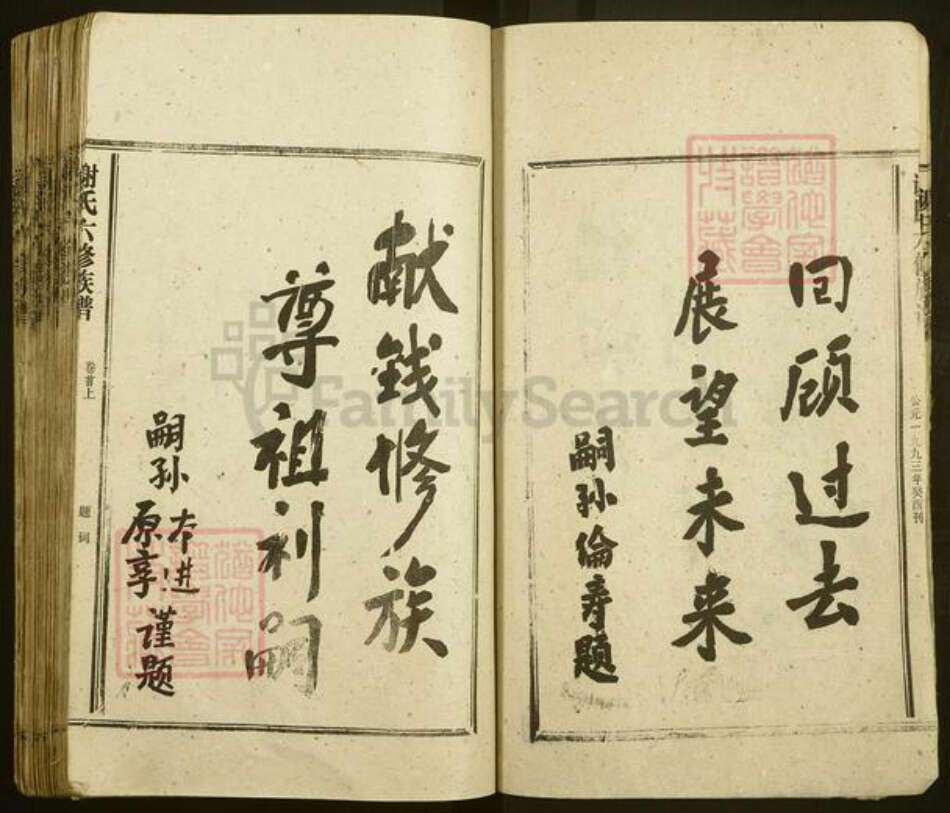 公元一九九三年癸酉刊
回顾过去
展望未来
嗣孙伦寿题
献钱修族
尊祖利嗣
嗣孙
本进
原享
谨题
谢氏六修族谱
卷首上
题词
FamilySearch